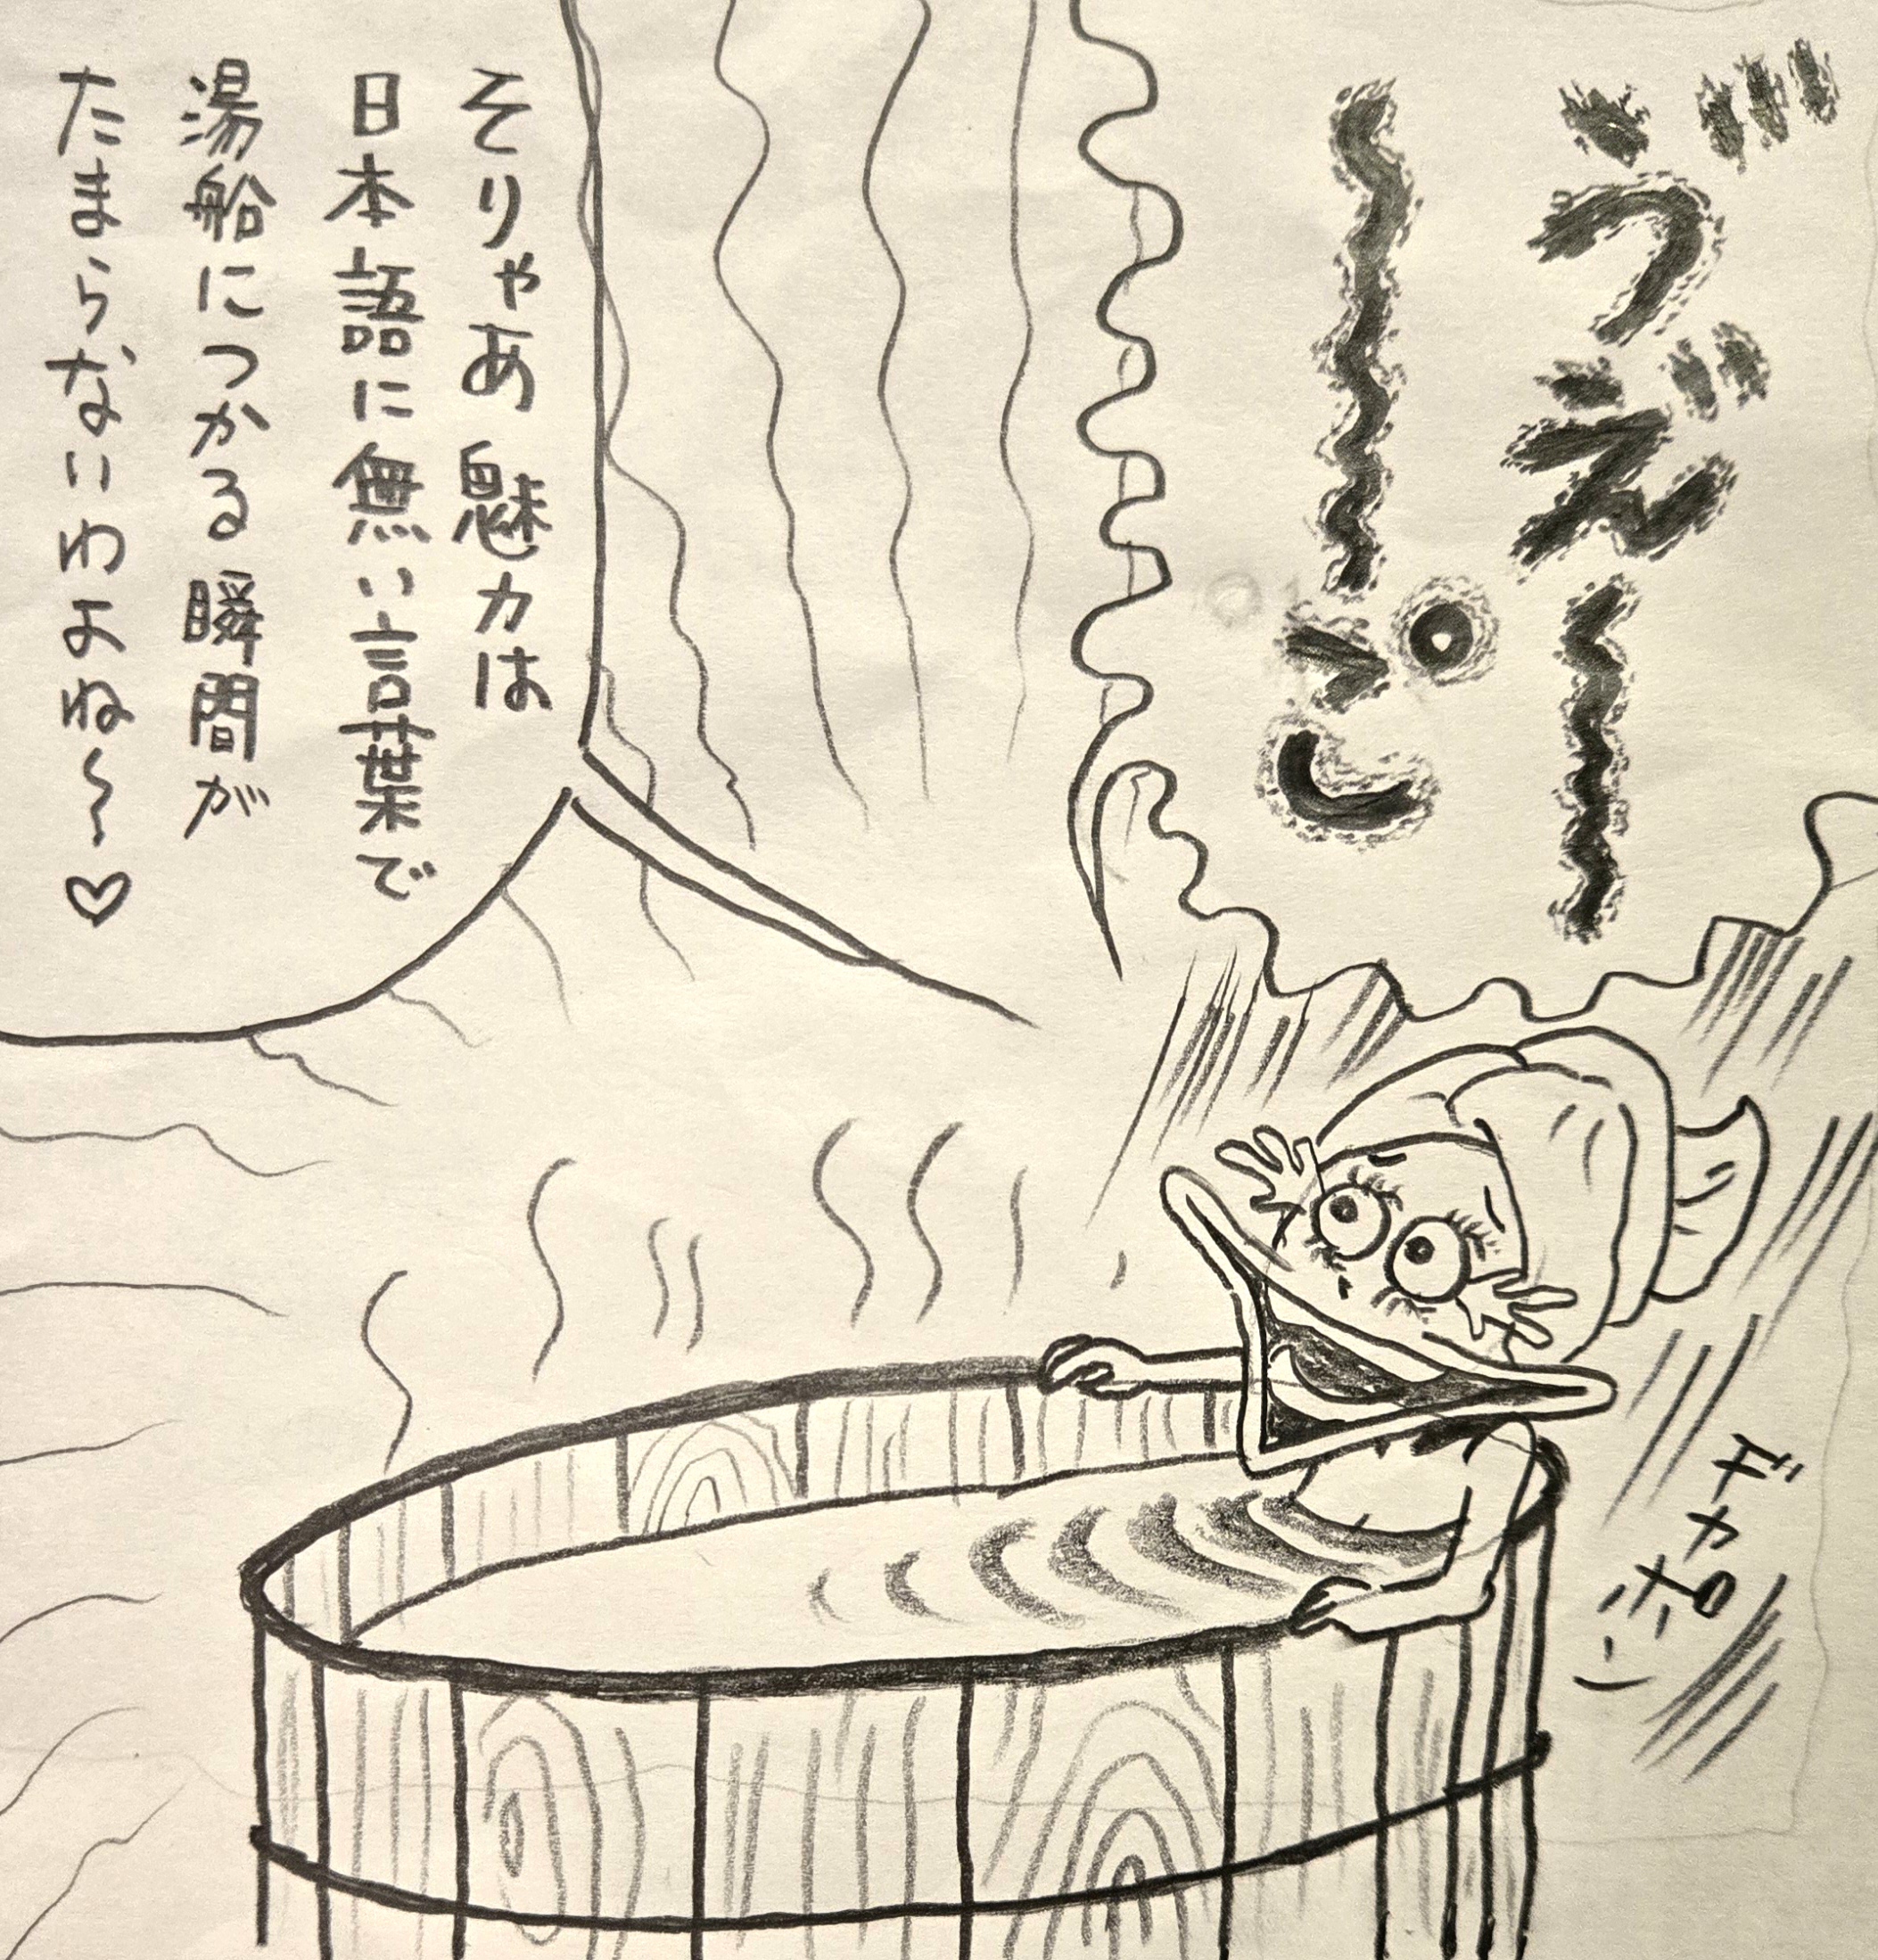 う゛え゛ー
ーこ゜
エ゛カポン
そりゃあ魅力は
日本語に無い言葉で
湯船につかる瞬間が
たまらないわよね〜♡